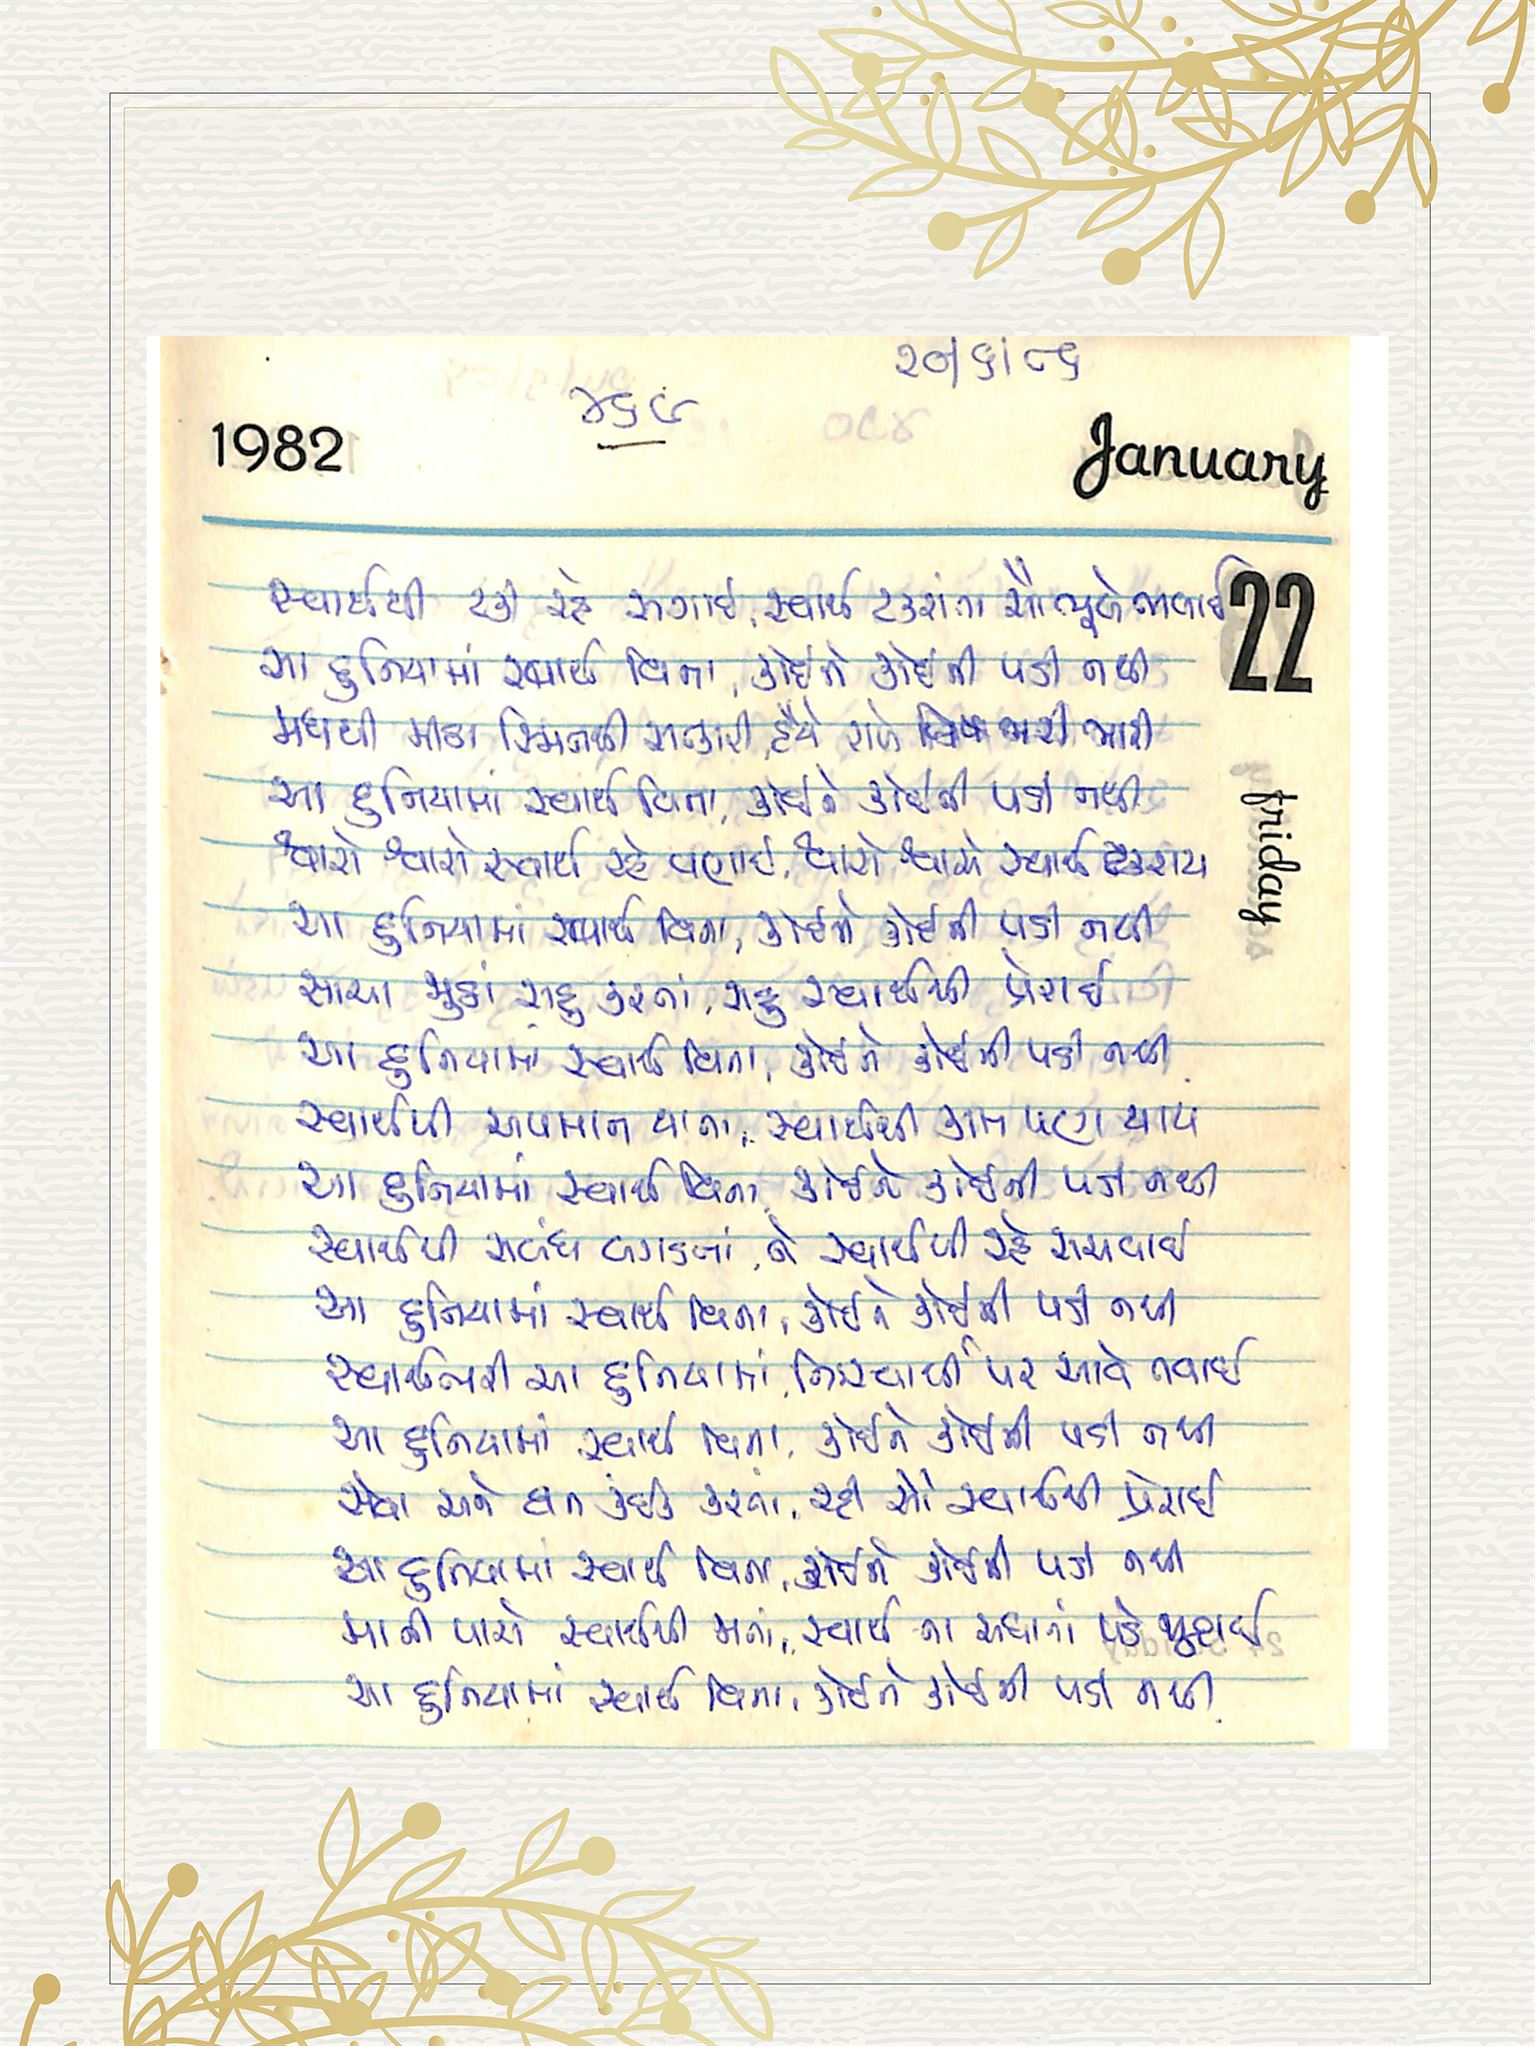 ૨૦/૬/૮૬
૪૬૯
1982
January
22
friday
સ્વાર્થથી ટકી રહે સગાઇ, સ્વાર્થ ટકરાંતા સૌ ભૂલે ભલાઇ
આ દુનિયામાં સ્વાર્થ વિના, કોઇને કોઇની પડી નથી
મધથી મીઠા સ્મિતથી સત્કારી, હૈયે રાખે વિષ ભરી ભારી
આ દુનિયામાં સ્વાર્થ વિના, કોઇને કોઇની પડી નથી
શ્વાસે શ્વાસે સ્વાર્થ રહે વણાઇ, શ્વાસે શ્વાસે સ્વાર્થ ટકરાય
આ દુનિયામાં સ્વાર્થ વિના, કોઇને કોઇની પડી નથી
સાચા જુઠાં સહુ કરતાં, સહુ સ્વાર્થથી પ્રેરાઇ
આ દુનિયામાં સ્વાર્થ વિના, કોઇને કોઇની પડી નથી
સ્વાર્થથી અપમાન થાતા, સ્વાર્થથી કામ પણ થાય
આ દુનિયામાં સ્વાર્થ વિના, કોઇને કોઇની પડી નથી
સ્વાર્થથી સબંધ બગડતાં, ને સ્વાર્થથી રહે સચવાઇ
આ દુનિયામાં સ્વાર્થ વિના, કોઇને કોઇની પડી નથી
સ્વાર્થભરી આ દુનિયામાં, નિઃસ્વાર્થી પર આવે નવાઇ
આ દુનિયામાં સ્વાર્થ વિના, કોઇને કોઇની પડી નથી
સેવા અને દાન કંઇક કરતાં, રહી સૌ સ્વાર્થથી પ્રેરાઇ
આ દુનિયામાં સ્વાર્થ વિના, કોઇને કોઇની પડી નથી
માની પાસે સ્વાર્થથી મતાં, સ્વાર્થ ના સધાતાં પડે જુદાઈ
આ દુનિયામાં સ્વાર્થ વિના, કોઇને કોઇની પડી નથી.